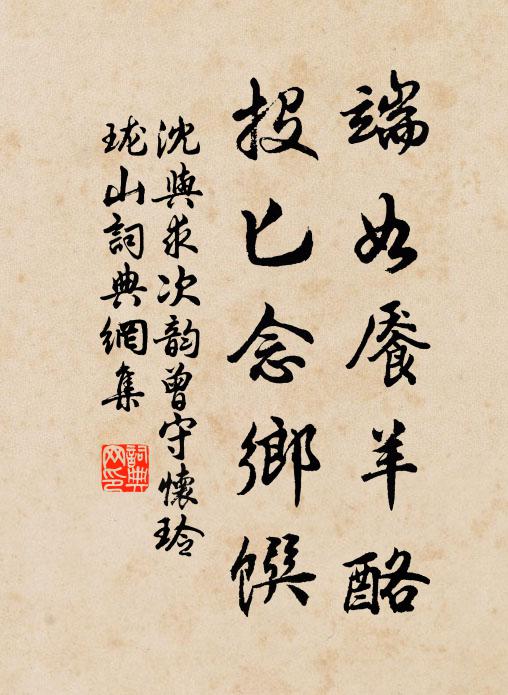 端如饜羊酪
投匕念鄉饌
沈與求次韵曾守懷玲
珑山詞典網集
詞典網印